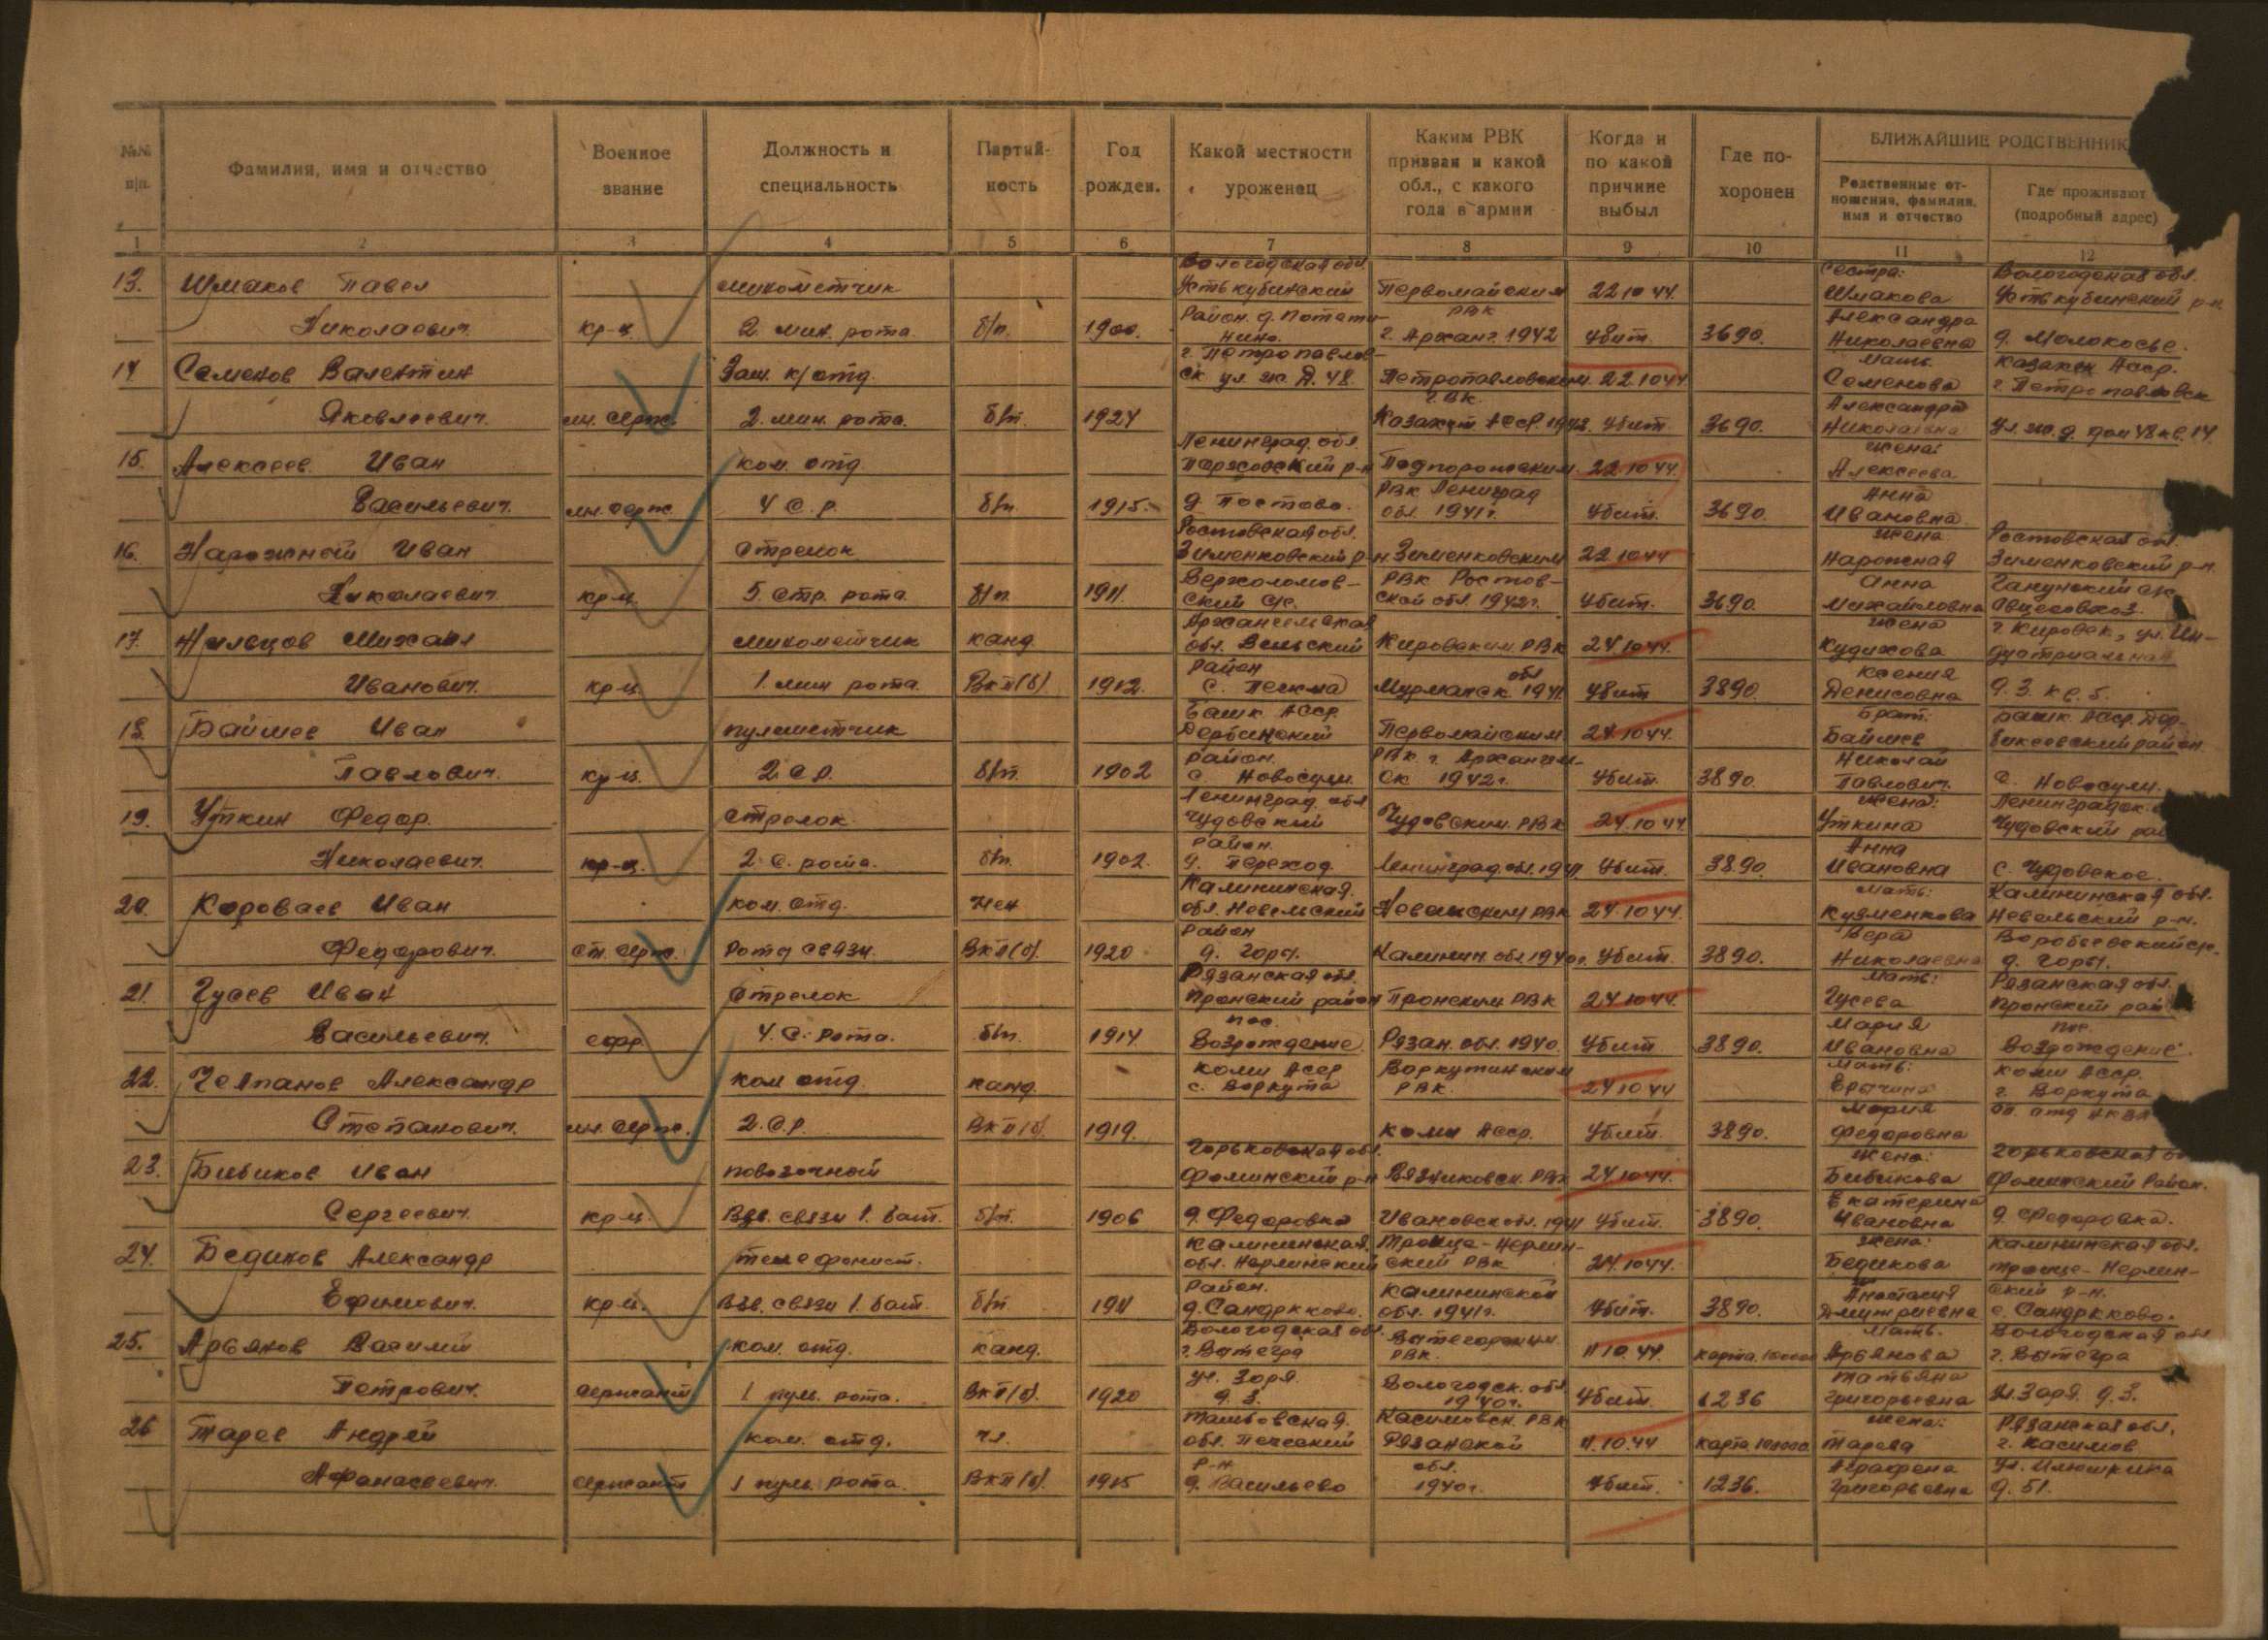 №№ п/п.
Фамилия, имя и отчество
Военное звание
Должность и специальность
Партий- ность
Год рожден.
Какой местности уроженец
Каким РВК призван и какой обл., с какого года в армии
Когда и по какой причине выбыл
Где по- хоронен
БЛИЖАЙШИЕ РОДСТВЕННИК
Родственные от- ношения, фамилия, имя и отчество
Где проживают (подробный адрес)
1 2 3 4 5 6 7 8 9 10 11 12
Вологодская обл. Сестра: Вологодская обл.
13. Шмаков Павел минометчик Устькубинский Первомайским 22 10 44. Шмакова Устькубинский р-н.
Район. д. РВК Александра
Николаевич. кр-ц. 2. мин. рота. б/п. 1900. г. Арханг. 1942 убит. 3690. Николаевна д. Молокосье.
г. Петропавлов- Мать. Казахск Асср.
14 Семенов Валентин Зам. к/отд. ск ул. ж. д. 48. Петропавловским 22 10 44 Семенова г. Петропавловск
ГВК. Александра
Яковлевич. мл. серж. 2. мин. рота. б/п. 1924 Казахст. АССР. убит 3690. Николаевна ул. ж. д. дом 48 кв. 14.
Ленинград. обл. жена:
15. Алексеев Иван ком. отд. р-н Подпорожским 22 10 44. Алексеева
РВК Ленинград Анна
Васильевич. мл. серж. 4 с. р. б/п. 1915. д. Постово. обл. 1941г. убит. 3690. Ивановна
Ростовская обл. жена Ростовская обл.
16. Нарожный Иван стрелок Зименковский р-н Зименковским 22 10 44 Нарожная Зименковский р-н.
РВК Ростов- Анна
Николаевич. кр-ц. 5. стр. рота. б/п. 1911. ский с/с. ской обл. 1942г. убит. 3690. Михайловна Овцесовхоз.
Архангельская жена г. Кировск, ул. Ин-
17. Нильцов Михаил минометчик канд. обл. Вельский Кировским РВК 24 10 44. Кудихова дустриальная
район обл Ксения
Иванович. кр-ц. 1. мин рота. Вкп(б) 1912. с. Пежма Мурманск 1941 убит 3890. Денисовна д. 3. кв. 5.
Башк. Асср. Брат:
18. Баймев Иван пулеметчик Первомайским 24 10 44. Баймев район
район. РВК. г. Архангел- Николай
Павлович. кр-ц. 2. с р. б/п. 1902 с. Новосули. ск 1942г. убит. 3890. Павлович. с. Новосули.
Ленинград. обл жена: Ленинградск.
19. Уткин Федор. стрелок Чудовский Чудовским. РВК 24. 10 44 Уткина Чудовский рай
район. Анна
Николаевич. кр-ц. 2. с. рота. б/п. 1902. д. Переход. Ленинград. обл. 1941 убит. 3890. Ивановна с. Чудовское.
Калининская. мать: Калининская обл.
20. Короваев Иван ком. отд. член обл. Невельский Невельским РВК 24. 10 44. Кузменкова Невельский р-н.
район Вера
Федорович. ст. серж. Рота связи. Вкп(б). 1920 д. Горы. Калинин. обл 1940г. убит. 3890. Николаевна д. Горы.
Рязанская обл. мать: Рязанская обл.
21. Гусев Иван стрелок Пронский район Пронским РВК 24 10 44. Гусева Пронский рай
пос. Мария пос.
Васильевич. ефр. 4. с. рота. б/п. 1914. Возрождение. Рязан. обл. 1940. убит. 3890. Ивановна Возрождение.
Коми Асср Воркутинским мать: Коми Асср.
22. Челпанов Александр ком отд. канд. с. Воркута РВК. 24 10 44 г. Воркута
Мария
Степанович. мл. серж. 2. с. р. Вкп(б). 1919. Коми Асср. убит. 3890. Федоровна
Горьковская обл. жена: Горьковская
23. Бибиков Иван повозочный Фоминский р-н Вязниковск. РВК 24 10 44. Бибикова Фоминский район.
Екатерина
Сергеевич. кр-ц. Взв. связи 1. бат. б/п. 1906 д. Федоровка Ивановск обл. 1941 убит. 3890. Ивановна д. Федоровка.
Калининская. Троице-Нерлин- жена: Калининская обл.
24. Бедиков Александр телефонист. обл. Нерлинский ский РВК 24. 10 44. Бедикова Троице-Нерлин-
район. Калининской Анастасия ский р-н.
Ефимович. кр-ц. Взв. связи 1. бат. б/п. 1911 обл. 1941г. убит. 3890. Дмитриевна
Вологодская обл. Вытегорским мать. Вологодская обл
25. Арьянов Василий ком. отд. канд. г. Вытегра РВК. 11 10. 44. карта. Арьянова г. Вытегра
ул. Заря. Вологодск. обл Татьяна
Петрович. сержант 1 пул. рота. Вкп(б). 1920 д. 3. 1940г. убит. 1236 Григорьевна ул. Заря. д. 3.
Тамбовская. Касимовск. РВК жена: Рязанская обл.
26 Тарев Андрей ком. отд. чл. обл. Рязанской 11. 10. 44 карта Тарева г. Касимов
р-н обл. Аграфена
Афанасьевич. сержант 1 пул. рота. Вкп(б). 1915 д. Васильево 1940г. убит. 1236. Григорьевна д. 51.